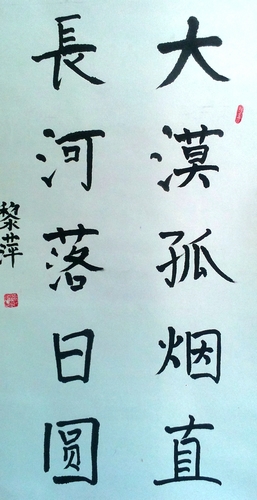 大漠孤烟直
長河落日圆
黎萍